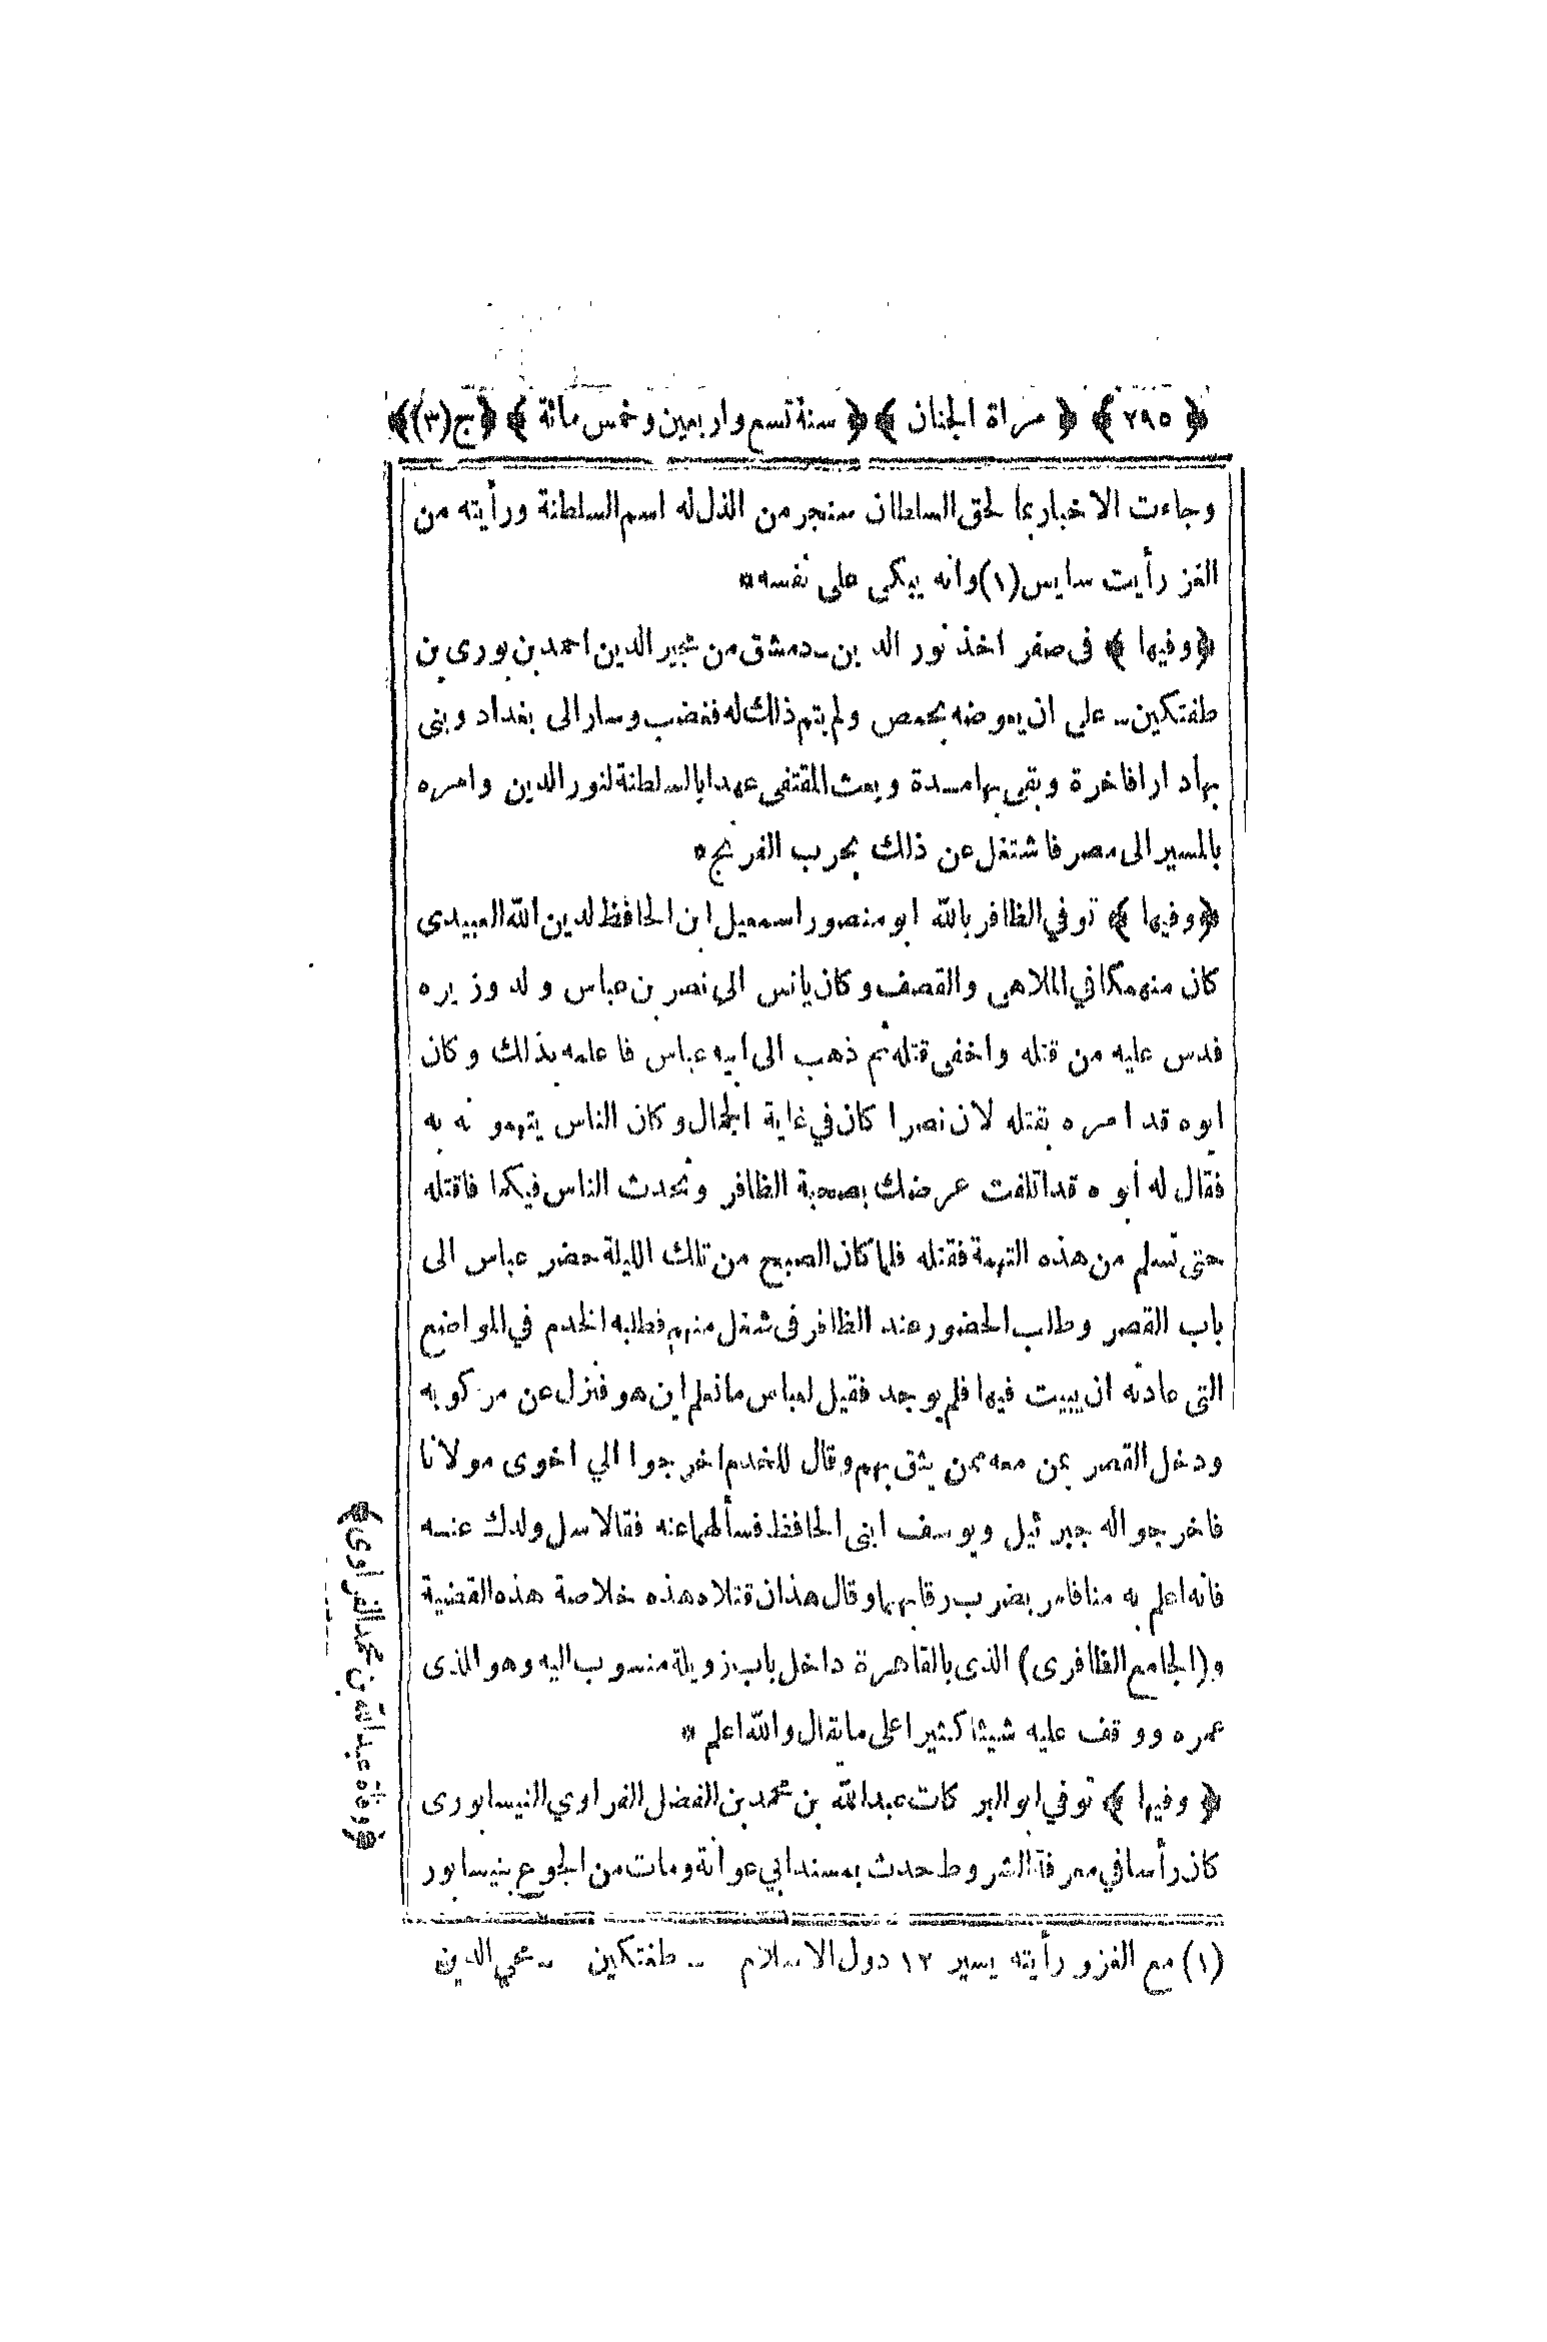 ﴿ ٢٩٥ ﴾ ﴿ مراة الجنان ﴾ ﴿ سنة تسع واربعين وخمس مائة ﴾ ﴿ ج (٣) ﴾
وجاءت الاخبار بما لحق السلطان سنجر من الذل له اسم السلطنة ورأيته من
الغز رأيت سايس (١) وانه يبكى على نفسه *
﴿ وفيها ﴾ فى صفر اخذ نور الدين ـ دمشق من مجير الدين احمد بن بورى بن
طغتكين ـ على ان يعوضه بحمص ولم يتم ذلك له فغضب وسار الى بغداد وبنى
بها دارا فاخرة وبقى بها مدة وبعث المقتفى عهدا بالسلطنة لنور الدين وامره
بالمسير الى مصر فاشتغل عن ذلك بحرب الفرنج *
﴿ وفيها ﴾ توفي الظافر بالله ابو منصور اسمعيل ابن الحافظ لدين الله العبيدى
كان منهمكا في الملاهى والقصف وكان يانس الى نصر بن عباس ولد وزيره
فدس عليه من قتله واخفى قتله ثم ذهب الى ابيه عباس فاعلمه بذلك وكان
ابوه قد امره بقتله لان نصرا كان في غاية الجمال وكان الناس يتهمونه به
فقال له أبوه قد اتلفت عرضك بصحبة الظافر وتحدث الناس فيكما فاقتله
حتى تسلم من هذه التهمة فقتله فلما كان الصبح من تلك الليلة حضر عباس الى
باب القصر وطلب الحضور عند الظافر فى شغل منهم فطلبه الخدم في المواضع
التى عادته ان يبيت فيها فلم يوجد فقيل لعباس مانعلم اين هو فنزل عن مركوبه
ودخل القصر بمن معه ممن يثق بهم وقال للخدم اخرجوا الي اخوى مولانا
فاخرجوا له جبرئيل ويوسف ابنى الحافظ فسألهما عنه فقالا سل ولدك عنه
فانه اعلم به منا فامر بضرب رقابهما وقال هذان قتلاه هذه خلاصة هذه القضية
و (الجامع الظافرى) الذى بالقاهرة داخل باب زويلة منسوب اليه وهو الذى
عمره ووقف عليه شيئا كثيرا على مايقال والله اعلم *
﴿ وفيها ﴾ توفي ابو البركات عبد الله بن محمد بن الفضل الفراوي النيسابورى
كان رأسا في معرفة الشروط حدث بمسند ابي عوانة ومات من الجوع بنيسابور
﴿ وفاة عبد الله بن محمد الفراوى ﴾
(١) مع الغز و رأيته يسير ١٢ دول الاسلام ـ طغتكين ـ محي الدين